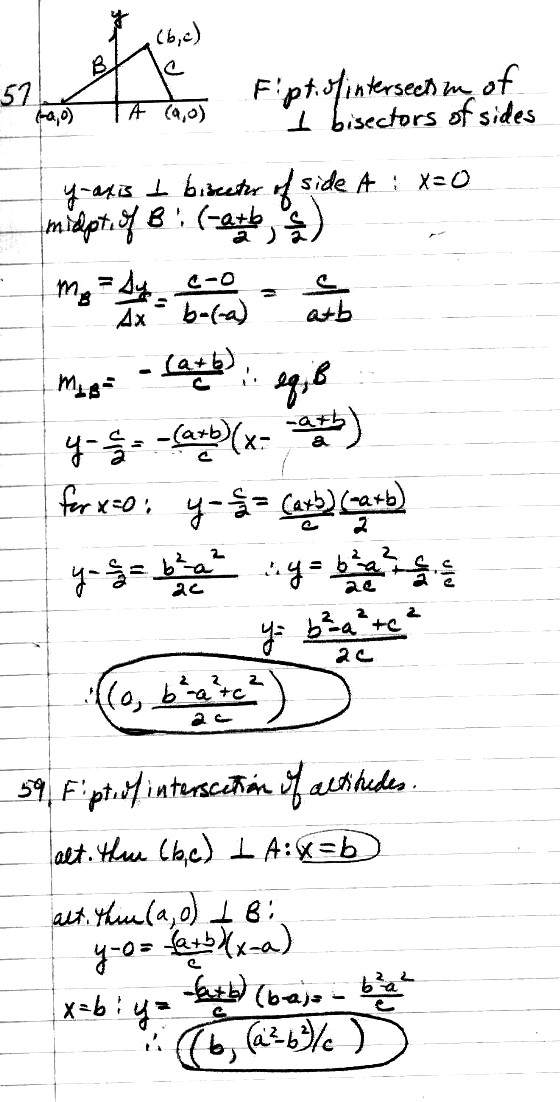 y
(b,c)
B
C
57
(-a,0) A (a,0)
F: pt. of intersection of
⊥ bisectors of sides
y-axis ⊥ bisector of side A : x=0
midpt. of B : (-a+b/2, c/2)
m_B = Δy/Δx = c-0/b-(-a) = c/a+b
m_⊥B = -(a+b)/c ∴ eq, B
y - c/2 = -(a+b)/c (x - -a+b/2)
for x=0 : y - c/2 = (a+b)/c (-a+b)/2
y - c/2 = b²-a²/2c ∴ y = b²-a²/2c + c/2 · c/c
y = b²-a²+c²/2c
∴ (0, b²-a²+c²/2c)
59 F: pt. of intersection of altitudes.
alt. thru (b,c) ⊥ A: x=b
alt. thru (a,0) ⊥ B:
y-0 = -(a+b)/c (x-a)
x=b : y = -(a+b)/c (b-a) = - b²-a²/c
∴ (b, (a²-b²)/c)